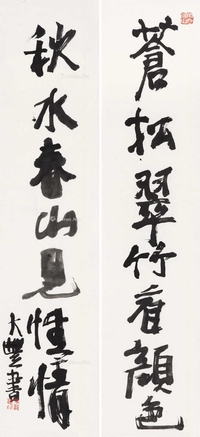 蒼松翠竹有顔色
秋水春山見性情
大豐書